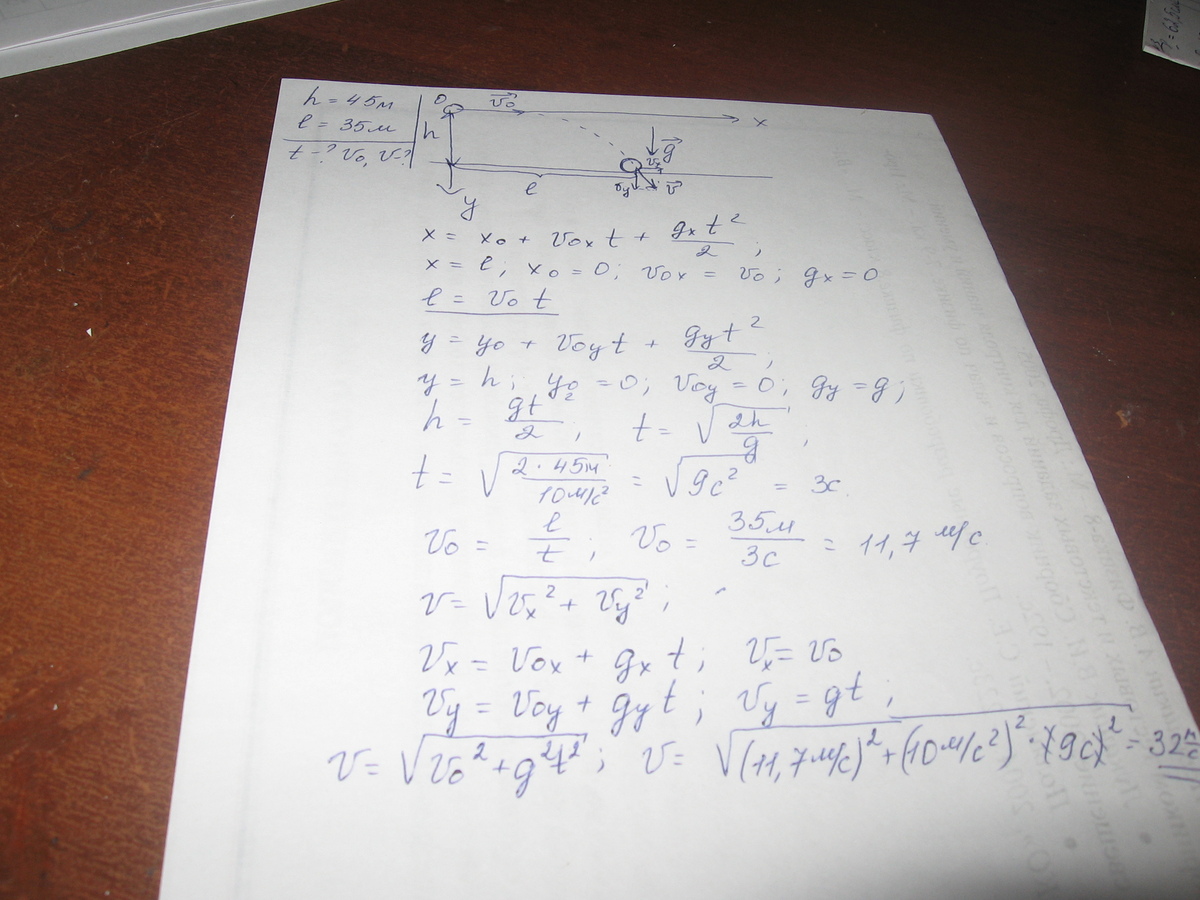 h = 45м
l = 35м
t - ? v₀, v - ?
0 v₀ x
h
g
vₓ
l v_y v
y
x = x₀ + v₀ₓ t + gₓ t²/2 ;
x = l; x₀ = 0; v₀ₓ = v₀; gₓ = 0
l = v₀ t
y = y₀ + v₀y t + gy t²/2 ;
y = h; y₀ = 0; v₀y = 0; gy = g;
h = gt²/2 ; t = √(2h/g) ;
t = √(2·45м/10м/с²) = √9с² = 3с.
v₀ = l/t ; v₀ = 35м/3с = 11,7 м/с
v = √(vₓ² + vy²) ;
vₓ = v₀ₓ + gₓ t; vₓ = v₀
vy = v₀y + gy t; vy = gt ;
v = √(v₀² + g²t²) ; v = √((11,7м/с)² + (10м/с²)² · (9с)²) = 32 м/с